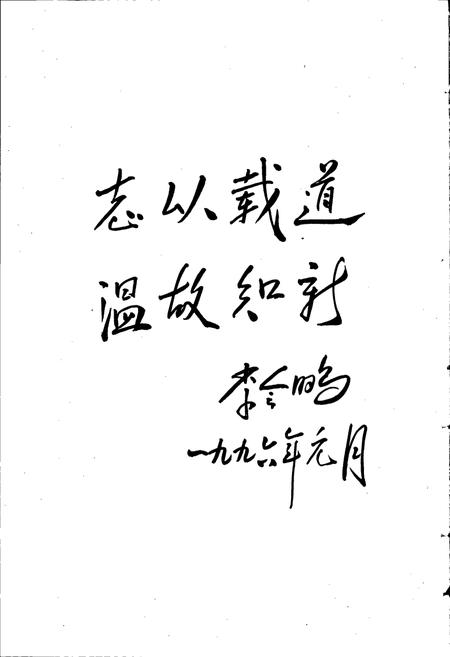 志以载道
温故知新
李今鸣
一九九六年元月